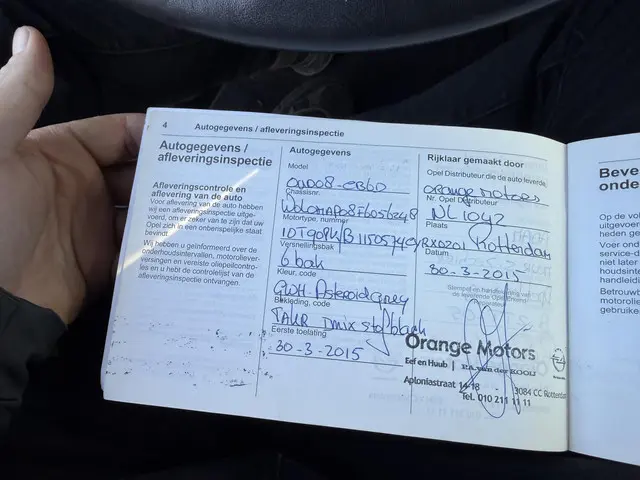 4
Autogegevens / afleveringsinspectie
Autogegevens /
afleveringsinspectie
Afleveringscontrole en
aflevering van de auto
Voor aflevering van de auto hebben
wij een afleveringsinspectie uitge-
voerd, om er zeker van te zijn dat uw
Opel zich in een onberispelijke staat
bevindt.
Wij hebben u geïnformeerd over de
onderhoudsintervallen, motorolie
verversingen en vereiste oliepeilcontro-
les en u hebt de controlelijst van de
afleveringsinspectie ontvangen.
Autogegevens
Model
Chassisnr.
Motortype, nummer
Versnellingsbak
6 bak
Kleur, code
GWH Asteroid grey
Bekleding, code
TAKR
Eerste toelating
30-3-2015
Rijklaar gemaakt door
Opel Distributeur die de auto leverde,
Orange Motors
Nr. Opel Distributeur
NL 1042
Plaats
Rotterdam
Datum
30-3-2015
Stempel en handtekening van
de leverende Opel
Orange Motors
Eef en Huub | P.A. van der KOOIJ
Aploniastraat 14-18
3084 CC Rotterda
Tel. 010 211 11 11
Beve
onde
Op de vo
uitgevoer
heden ge
Voer ond
service-d
niet later
houdsinte
handleidi
Betrouwb
motorolie
gebruiken